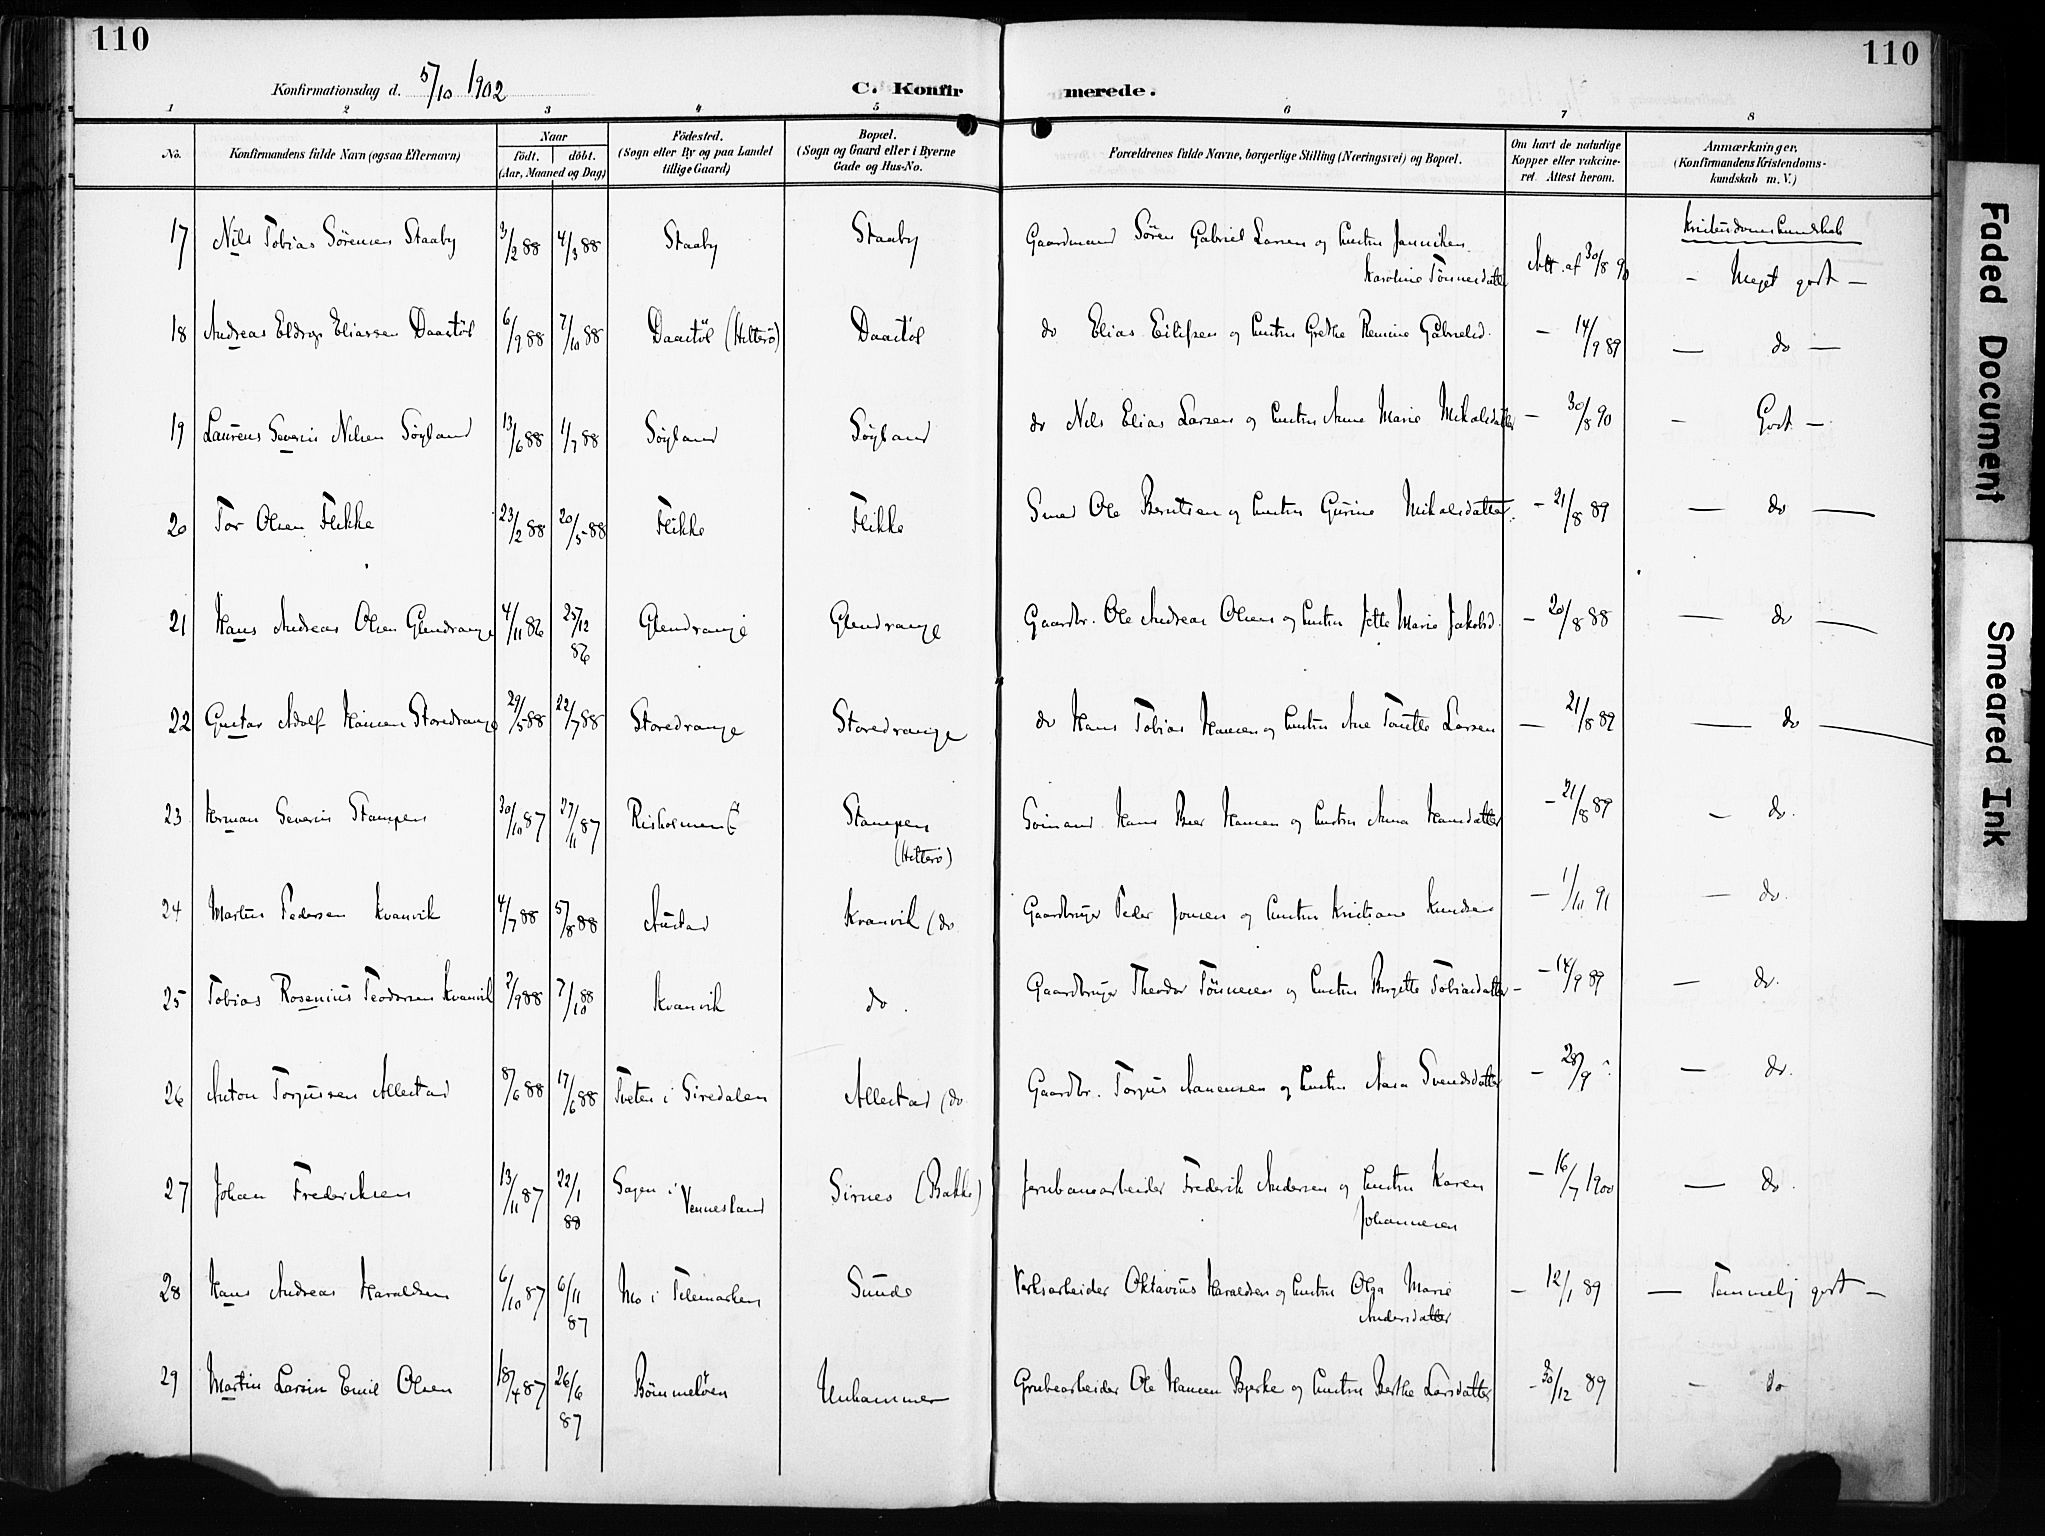 110
110
Konfirmationsdag d. 5/10 1902
C. Konfirmerede.
1 2 3 4 5 6 7 8
No.
Konfirmandens fulde Navn (ogsaa Efternavn)
Naar
födt. döbt.
(Aar, Maaned og Dag)
Födested.
(Sogn eller By og paa Landet
tillige Gaard)
Bopæl.
(Sogn og Gaard eller i Byerne
Gade og Hus-No.
Forældrenes fulde Navne, borgerlige Stilling (Næringsvei) og Bopæl.
Om havt de naturlige
Kopper eller vakcine-
ret. Attest herom.
Anmærkninger,
(Konfirmandens Kristendoms-
kundskab m. V.)
Kristendomskundskab
17 Nils Tobias Sörensen Staaby 3/2 88 4/3 88 Staaby Staaby Gaardmand Sören Gabriel Larsen og Hustru Janniken Att. af 30/8 90 - Meget godt -
Karoline Tönnesdatter
18 Andreas Eldrup Eliassen Daastöl 6/9 88 7/10 88 Daastöl (Hitterö) Daastöl do Elias Eilefsen og Hustru Grethe Gabrielsd. - 14/9 89 - do -
19 Laurens Severin Nilsen Söyland 13/6 88 1/7 88 Söyland Söyland do Nils Elias Larsen og Hustru Anne Marie Mikalsdatter - 30/8 90 - Godt -
20 Tor Olsen Flikke 23/2 88 20/5 88 Flikke Flikke Smed Ole Berntsen og Hustru Gurine Mikalsdatter. - 21/8 89 - do -
21 Hans Andreas Olsen Glendrange 4/11 86 25/12 86 Glendrange Glendrange Gaardbr. Ole Andreas Olsen og Hustru Jette Marie Jakobsd. - 20/8 88 - do -
22 Gustav Adolf Hansen Storedrange 29/5 88 22/7 88 Storedrange Storedrange do Hans Tobias Hansen og Hustru Ane Larsen - 21/8 89 - do -
23 Herman Severin Stampen 30/10 87 27/11 87 Risholmen Stampen Hans Hansen og Hustru Anna Hansdatter - 21/8 89 - do.
(Hitterö)
24 Martin Pedersen Kvanvik 4/7 88 5/8 88 Austad Kvanvik (do Gaardbruger Peder Jonsen og Hustru Kristiane Knudsen - 1/10 91 - do.
25 Tobias Rosenius Teodorsen Kvanvik 2/9 88 7/10 88 Kvanvik do. Gaardbruger Theodor Tönnesen og Hustru Birgitte Tobiasdatter - 14/9 89 - do.
26 Anton Torjussen Allestad 8/6 88 17/6 88 Tveten i Siredalen Allestad (do Gaardbr. Torjus Aanensen og Hustru Aasa Svendsdatter - 28/9 - do.
27 Johan Frederiksen 13/11 87 22/1 88 Sagen i Vennesland Sirnes (Bakke) Jernbanearbeider Frederik Andersen og Hustru Karen - 16/7 1900 - do.
Johannesen
28 Hans Andreas Haraldsen 6/10 87 6/11 87 Mo i Telemarken Sunde Verksarbeider Oktavius Haraldsen og Hustru Olga Marie - 12/1 89 - Temmelig godt -
Andersdatter
29 Martin Larsin Emil Olsen 18/4 87 26/6 87 Bömmelöen Unhammer Grubearbeider Ole Hansen Bjerke og Hustru Berthe Larsdatter - 30/12 89 - do
Faded Document
Smeared Ink